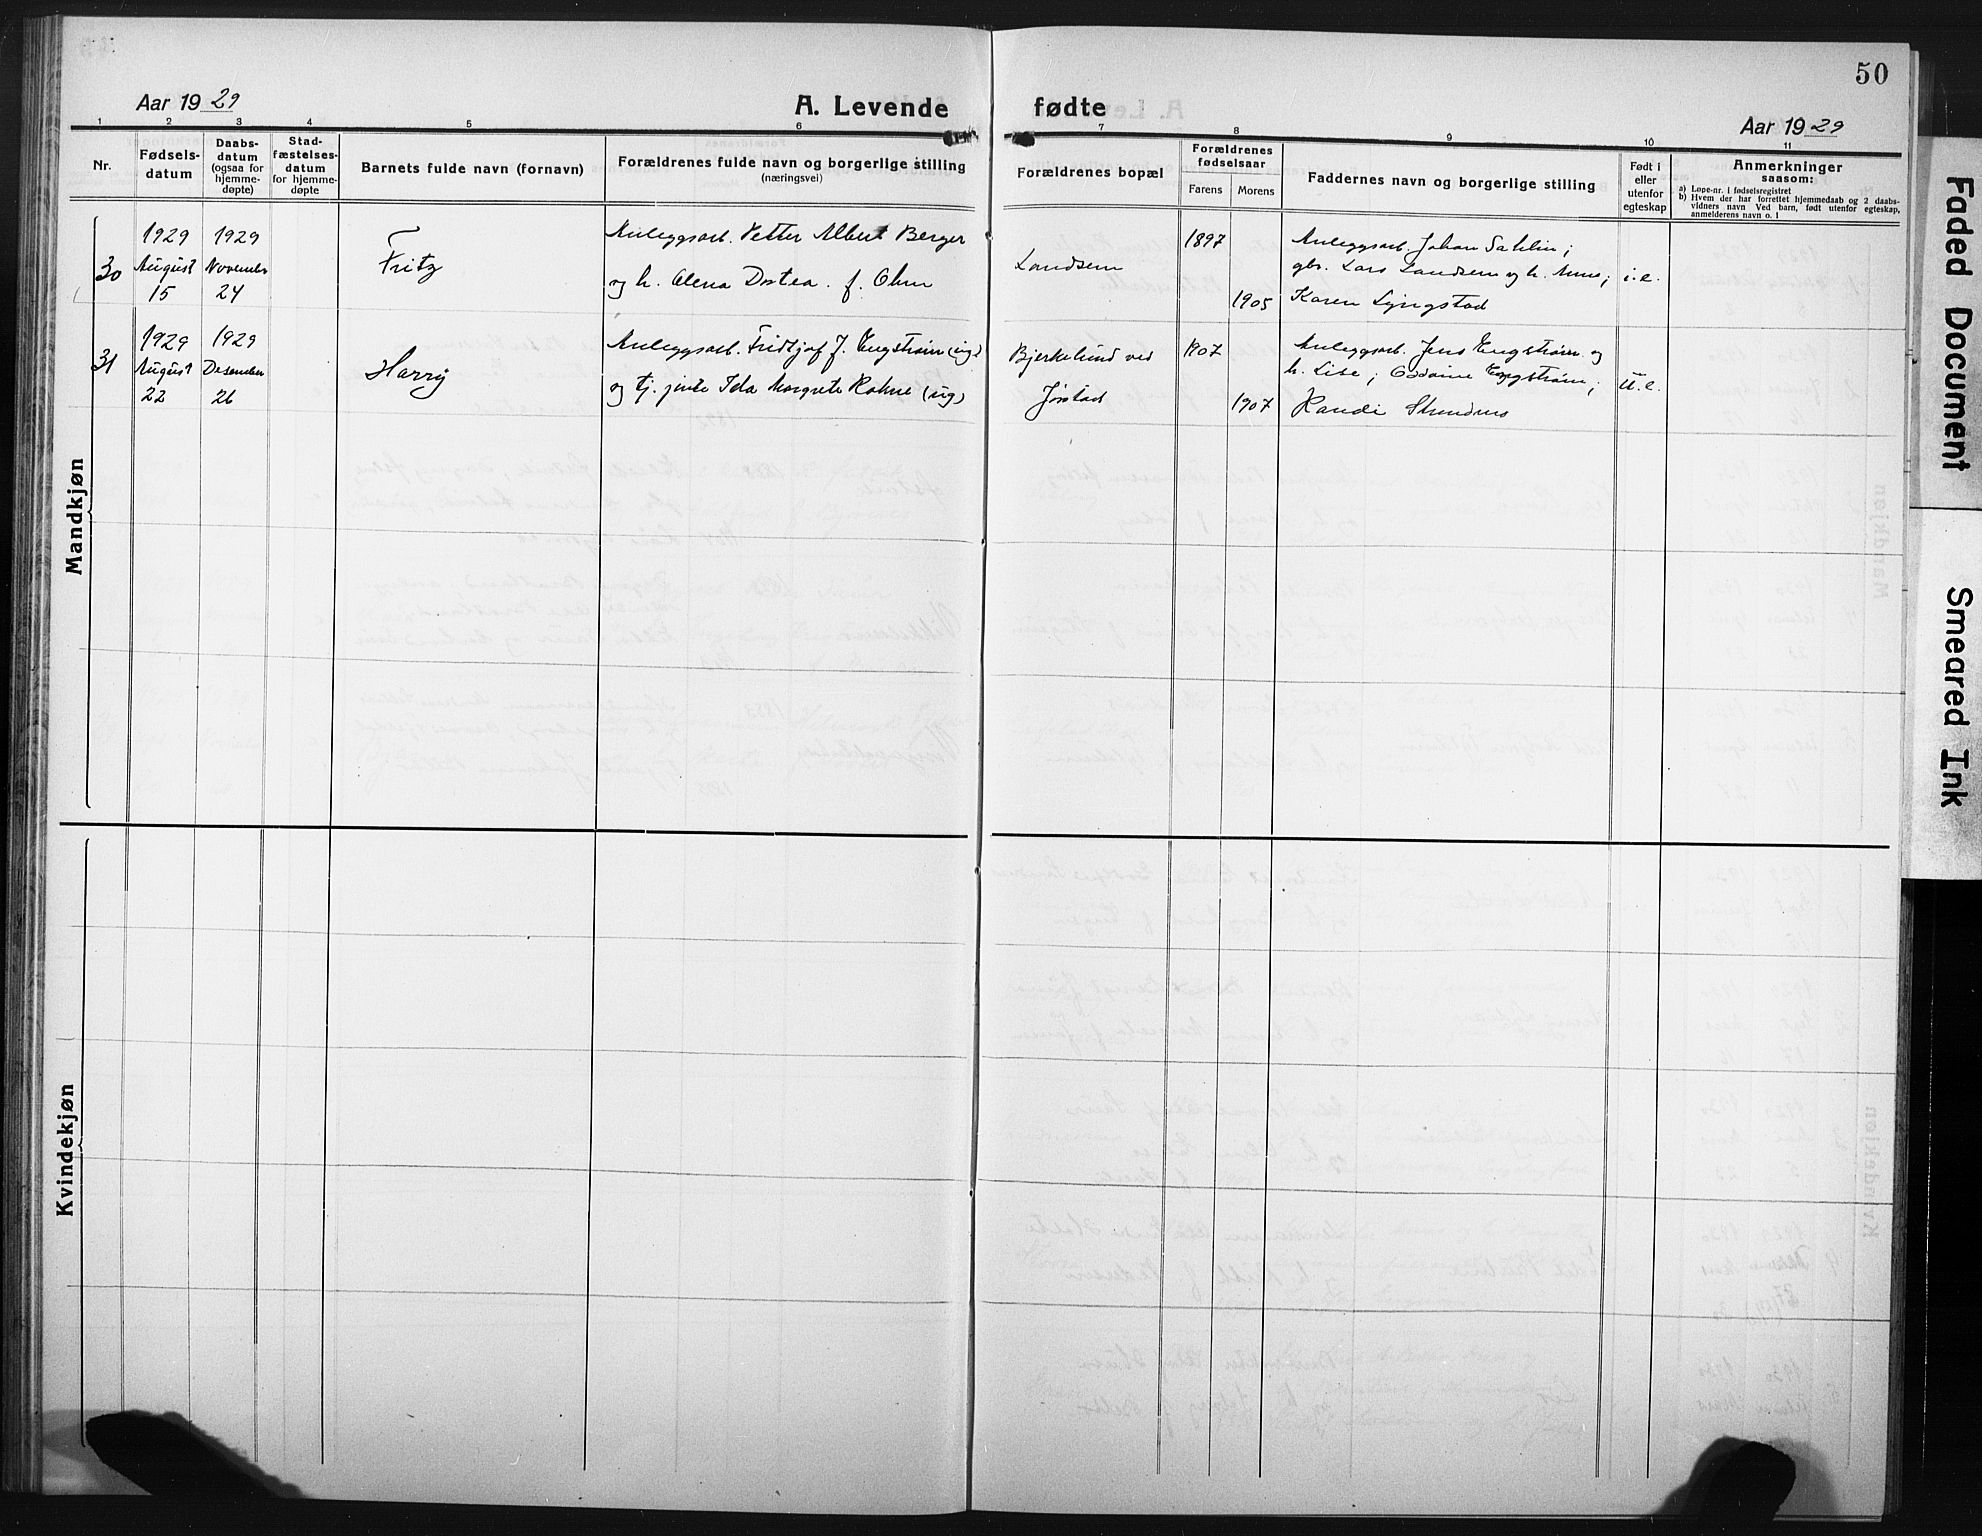 50
Aar 1929
A. Levende fødte
Aar 1929
1 2 3 4 5 6 7 8 9 10 11
Nr.
Fødsels-
datum
Daabs-
datum
(ogsaa for
hjemme-
døpte)
Stad-
fæstelses-
datum
for hjemme-
døpte
Barnets fulde navn (fornavn)
Forældrenes fulde navn og borgerlige stilling
(næringsvei)
Forældrenes bopæl
Forældrenes
fødselsaar
Farens Morens
Faddernes navn og borgerlige stilling
Født i
eller
utenfor
egteskap
Anmerkninger
saasom:
a) Løpe-nr. i fødselsregistret
b) Hvem der har forrettet hjemmedaab og 2 daabs-
vidners navn Ved barn, født utenfor egteskap,
anmelderens navn o. l
Mandkjøn
30
1929
August
15
1929
November
24
Fritz
Anleggsarb. Petter Albert Berger
og h. Olena Dortea. f. Ohm
Landsem
1897
1905
Anleggsarb. Johan Sahlin;
gbr. Lars Landsem og h. Anne;
Karen Lyngstad
i.e.
31
1929
August
22
1929
Desember
26
Harry
Anleggsarb. Fridtjof J. Engstrøm (ug)
og tj. jente Ida Margrete Rohne (ug)
Bjerkelund ved
Jørstad
1907
1907
Anleggsarb. Jens Engstrøm og
h. Lise; Oddine Engstrøm;
Randi
u.e.
Kvindekjøn
Faded Document
Smeared Ink